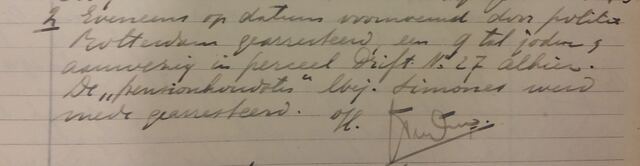 2 Eveneens op datum voornoemd door politie
Rotterdam gearresteerd een 9 tal joden,
aanwezig in perceel Drift No. 27 alhier.
De „pensionhoudster" Mej. Simones werd
mede gearresteerd.